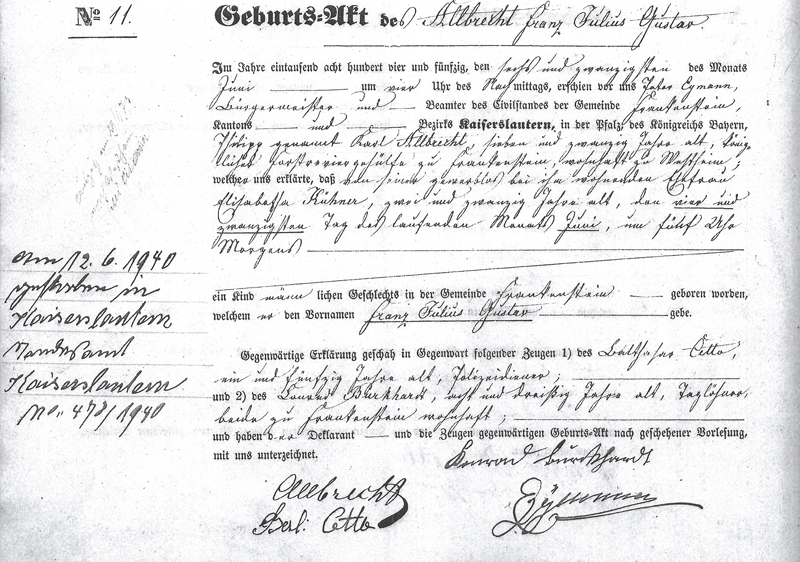 No 11.
Geburts-Akt des Allbrecht Franz Julius Gustav.
Im Jahre eintausend acht hundert vier und fünfzig, den sechs und zwanzigsten des Monats
Juni um vier Uhr des Nachmittags, erschien vor uns Peter Eymann,
Bürgermeister und Beamter des Civilstandes der Gemeinde Frankenstein,
Kantons und Bezirks Kaiserslautern, in der Pfalz, des Königreichs Bayern,
Philipp genannt Karl Allbrecht, sieben und zwanzig Jahre alt, könig-
licher Forstreviergehülfe zu Frankenstein, wohnhaft zu
welcher uns erklärte, daß von seiner gewerblos bei ihm wohnenden Ehefrau
Elisabetha Kühner, zwei und zwanzig Jahre alt, den vier und
zwanzigsten Tag des laufenden Monats Juni, um fünf Uhr
Morgens
ein Kind männlichen Geschlechts in der Gemeinde Frankenstein geboren worden,
welchem er den Vornamen Franz Julius Gustav gebe.
Gegenwärtige Erklärung geschah in Gegenwart folgender Zeugen 1) des Balthasar Cetto,
ein und fünfzig Jahre alt, Polizeidiener;
und 2) des Conrad Burkhardt, acht und dreißig Jahre alt, Taglöhner,
beide zu Frankenstein wohnhaft;
und haben der Deklarant und die Zeugen gegenwärtigen Geburts-Akt nach geschehener Vorlesung,
mit uns unterzeichnet.
Konrad Burckhardt
Allbrecht
Bal: Cetto
Eymann
am 12. 6. 1940
gestorben in
Kaiserslautern
Standesamt
Kaiserslautern
No. 478/1940